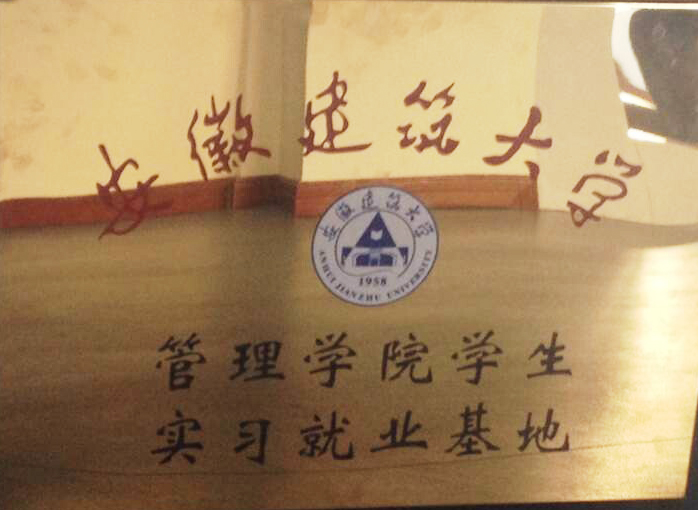 安徽建筑大学
安徽建筑大学
ANHUI JIANZHU UNIVERSITY
1958
管理学院学生
实习就业基地